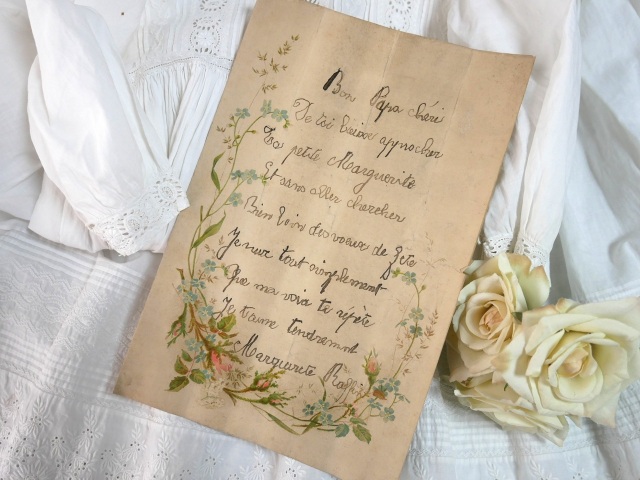 Bon Papa chéri
De toi laisse approcher
Ta petite Marguerite
Et sans aller chercher
Bien loin des voeux de fête
Je veux tout simplement
Que ma voix te répète
Je t'aime tendrement
Marguerite